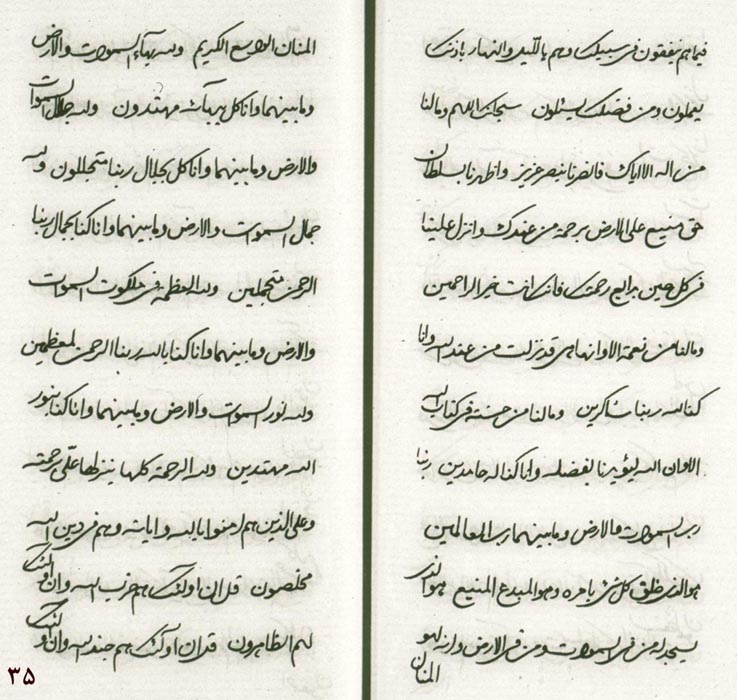 فيما هم ينفقون في سبيلك وهم بالليل والنهار باذنك
يعملون ومن فضلك يسئلون سبحانك اللهم ومالنا
من اله الا اياك فانصرنا بنصر عزيز واظهرنا بسلطان
حق منيع على الارض برحمة من عندك وانزل علينا
في كل حين بدايع رحمتك فانك انت خير الراحمين
ومالنا من نعمة الا وانها هي قد نزلت من عند الله وانا
كنا لله ربنا شاكرين ومالنا من حسنة في كتاب الله
الا وان الله ليؤيدنا بفضله وانا كنا له حامدين ربنا
رب السموات والارض وما بينهما رب العالمين
هو الذي خلق كل شئ بامره وهو المبدع المنيع هو الذي
يسجد له من في السموات ومن في الارض وانه لهو
المنان
المنان الواسع الكريم ولله بهاء السموات والارض
وما بينهما وانا كل ببهائه مهتدون ولله جلال السموات
والارض وما بينهما وانا كل بجلال ربنا متجللون ولله
جمال السموات والارض وما بينهما وانا كنا بجمال ربنا
الرحمن متجملين ولله العظمة في ملكوت السموات
والارض وما بينهما وانا كنا بالله ربنا الرحمن لمعظمين
ولله نور السموات والارض وما بينهما وانا كنا بنور
الله مهتدين ولله الرحمة كلها ينزلها على برحمته
وعلى الذين هم امنوا بالله واياته وهم في دين الله
مخلصون قل ان اولئك هم حزب الله وان اولئك
لهم الظاهرون قل ان اولئك هم جند الله وان اولئك
٣٥